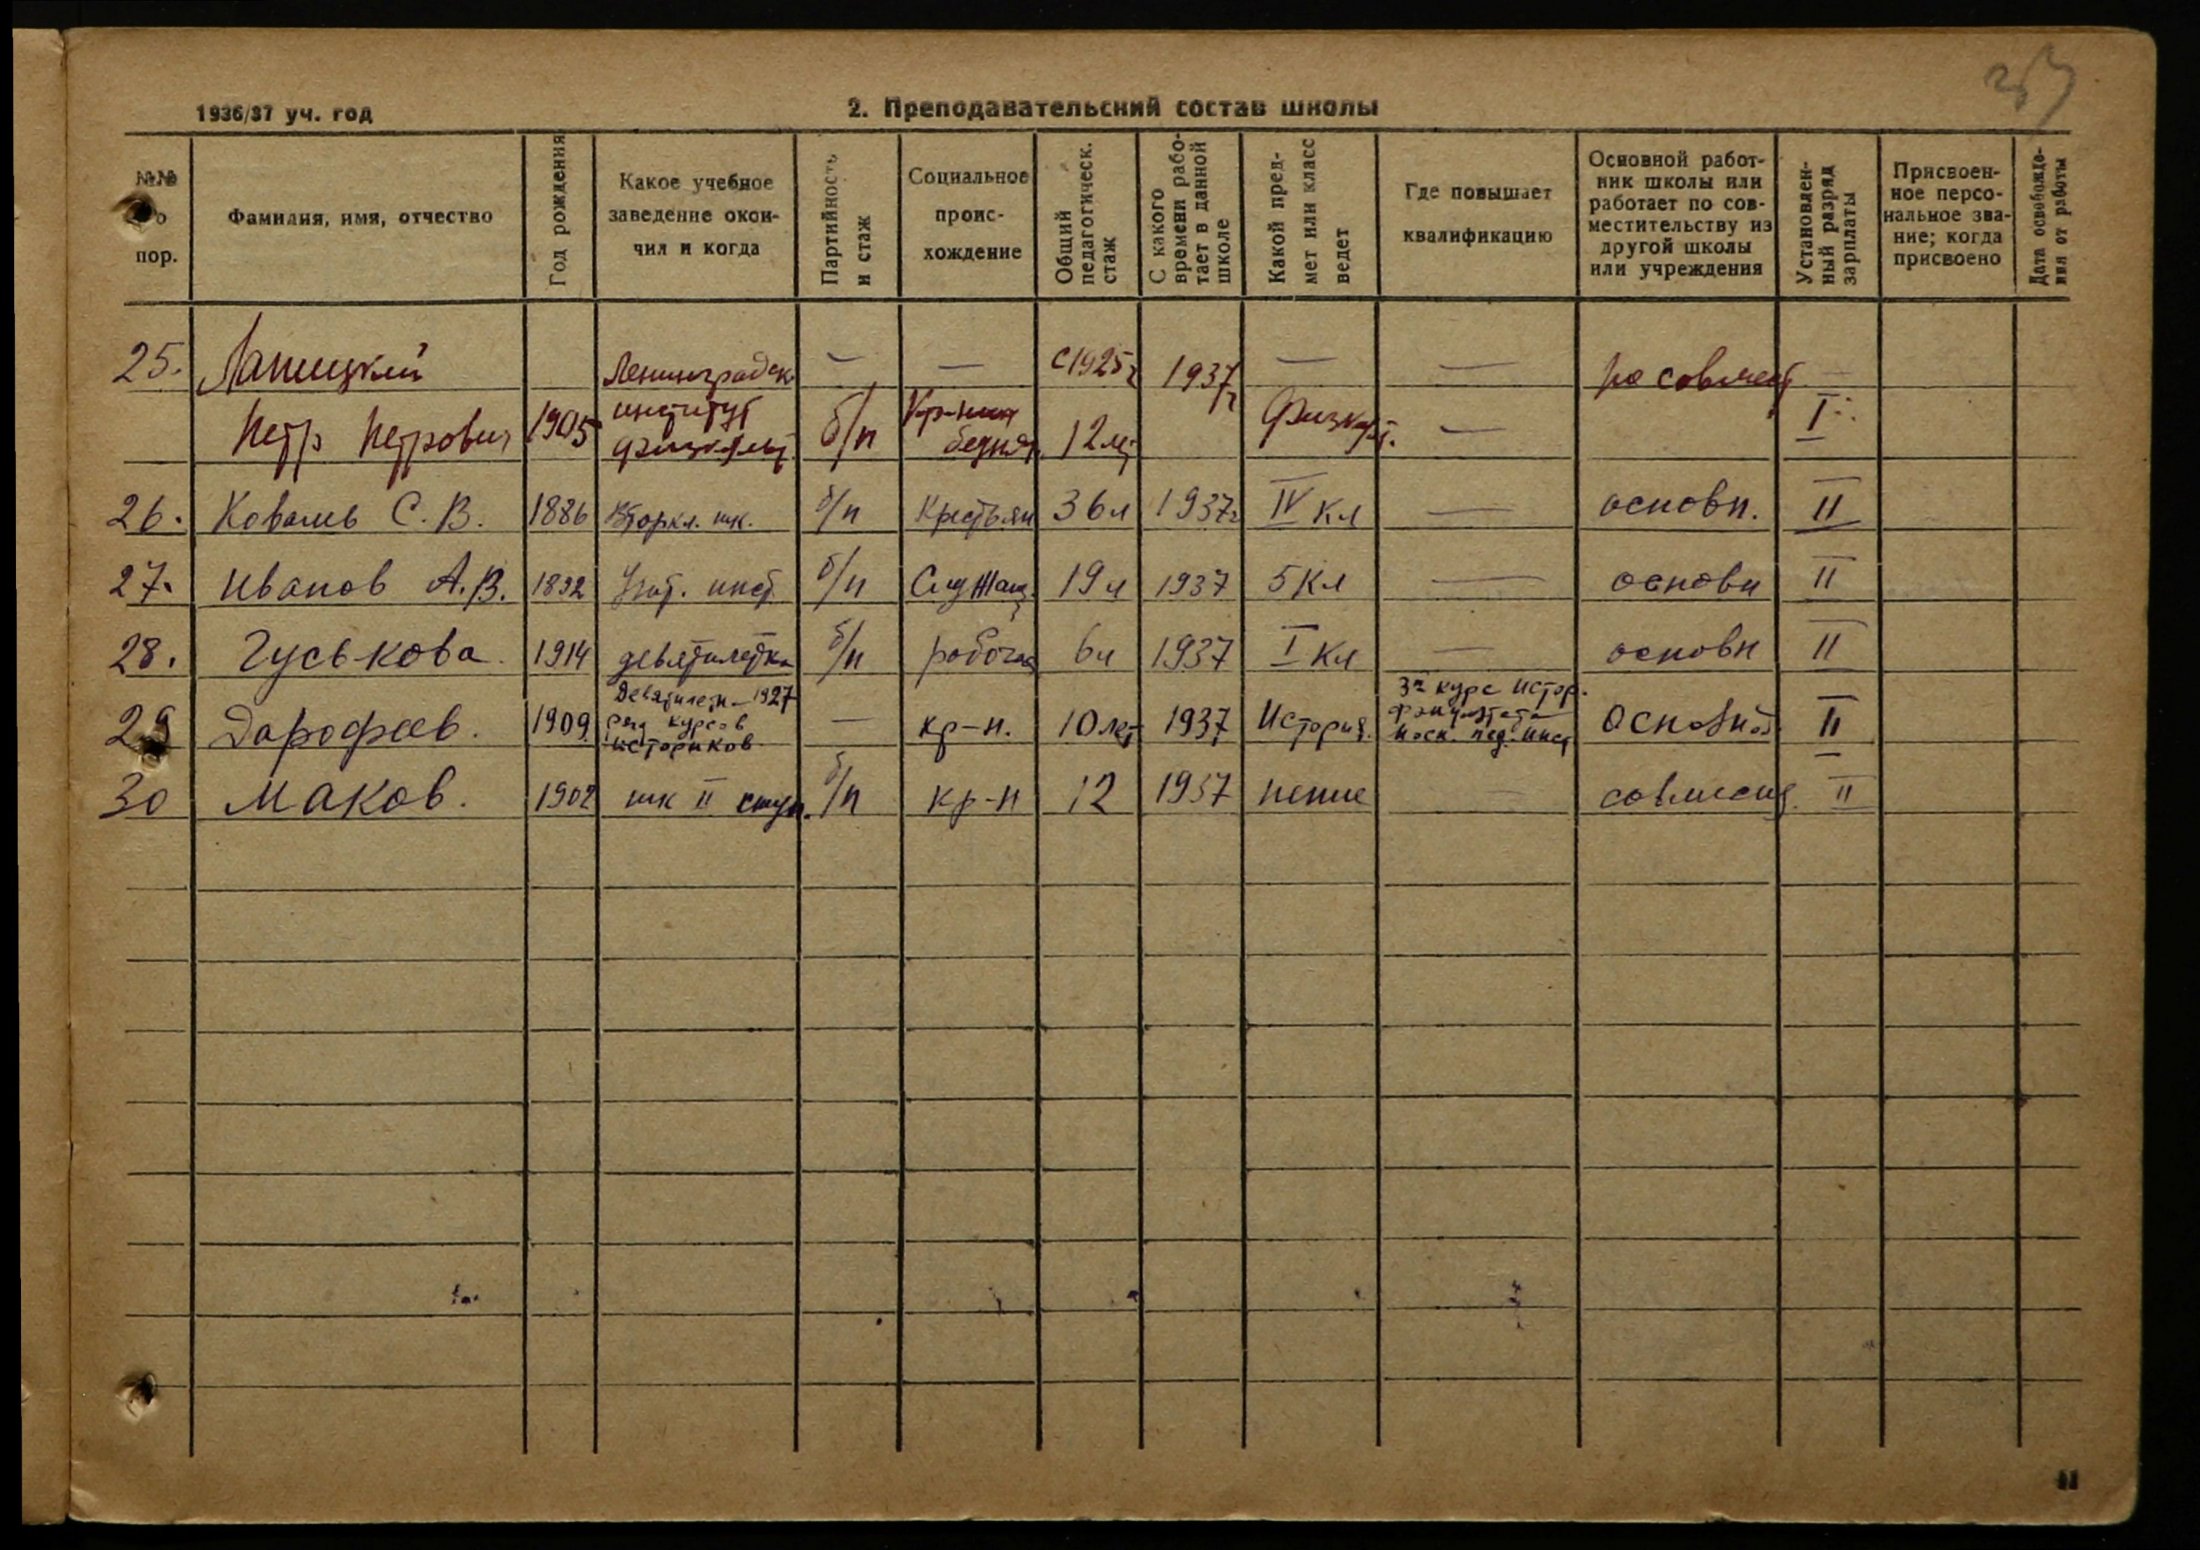 257
1936/37 уч. год
2. Преподавательский состав школы
№№ по пор.
Фамилия, имя, отчество
Год рождения
Какое учебное заведение окончил и когда
Партийность и стаж
Социальное происхождение
Общий педагогическ. стаж
С какого времени работает в данной школе
Какой предмет или класс ведет
Где повышает квалификацию
Основной работник школы или работает по совместительству из другой школы или учреждения
Установленный разряд зарплаты
Присвоенное персональное звание; когда присвоено
Дата освобождения от работы
25. Лапицкий Ленинградск — — с 1925г 1937г — — по совмест
Петр Петрович 1905 институт физкульт б/п Кр-нин бедняк 12 лет Физкульт. — I
26. Коваль С. В. 1886 Вторкл. шк. б/п Крестьян 36л 1937г IV кл — основн. II
27. Иванов А. В. 1892 Учит. инст б/п Служащ 19л 1937 5 Кл — основн II
28. Гуськова 1914 девятилетка б/п рабочая 6л 1937 I Кл — основн II
29 Дарофеев. 1909 Девятилетн — 1927 ряд курсов историков — кр-н. 10 лет 1937 История. 3й курс истор. факультета Моск. пед. инст Основной II
30 Маков. 1902 шк II ступ. б/п кр-н 12 1937 пение — совместит. II
11